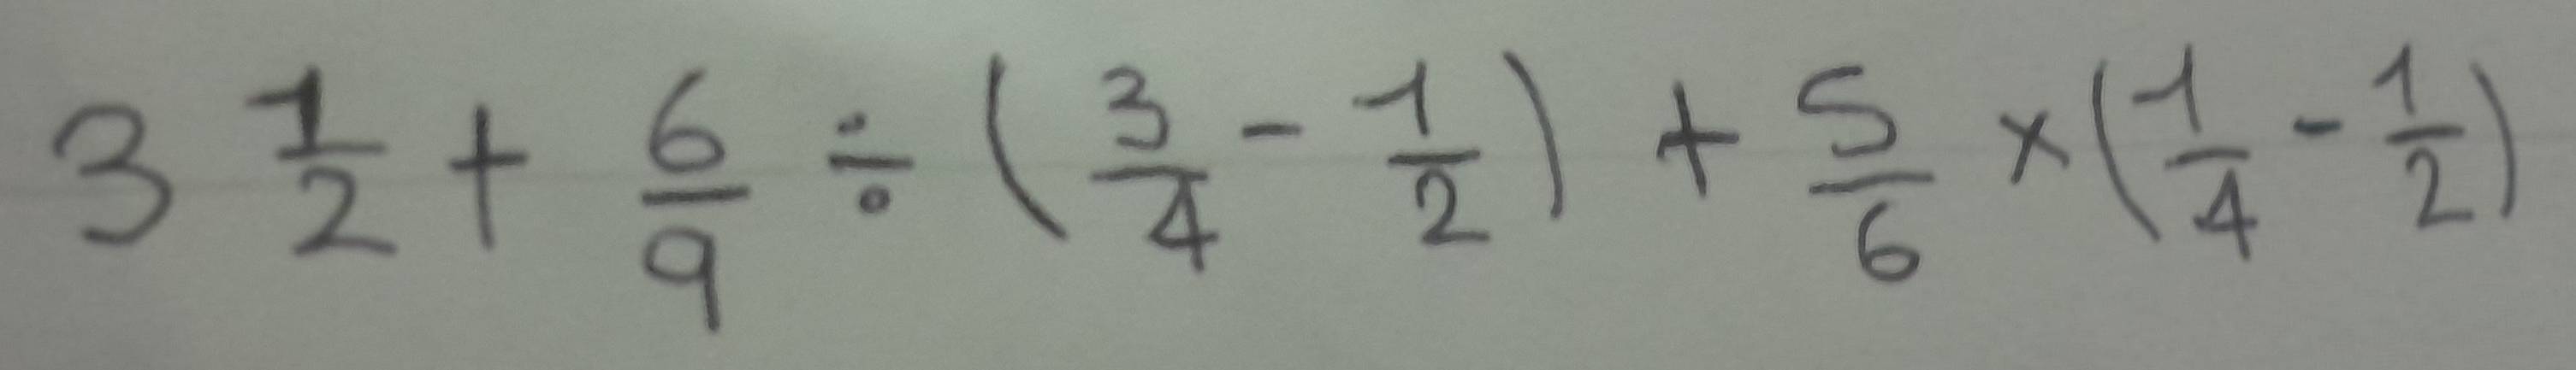 3 1/2 + 6/9 ÷ (3/4 - 1/2) + 5/6 × (1/4 - 1/2)